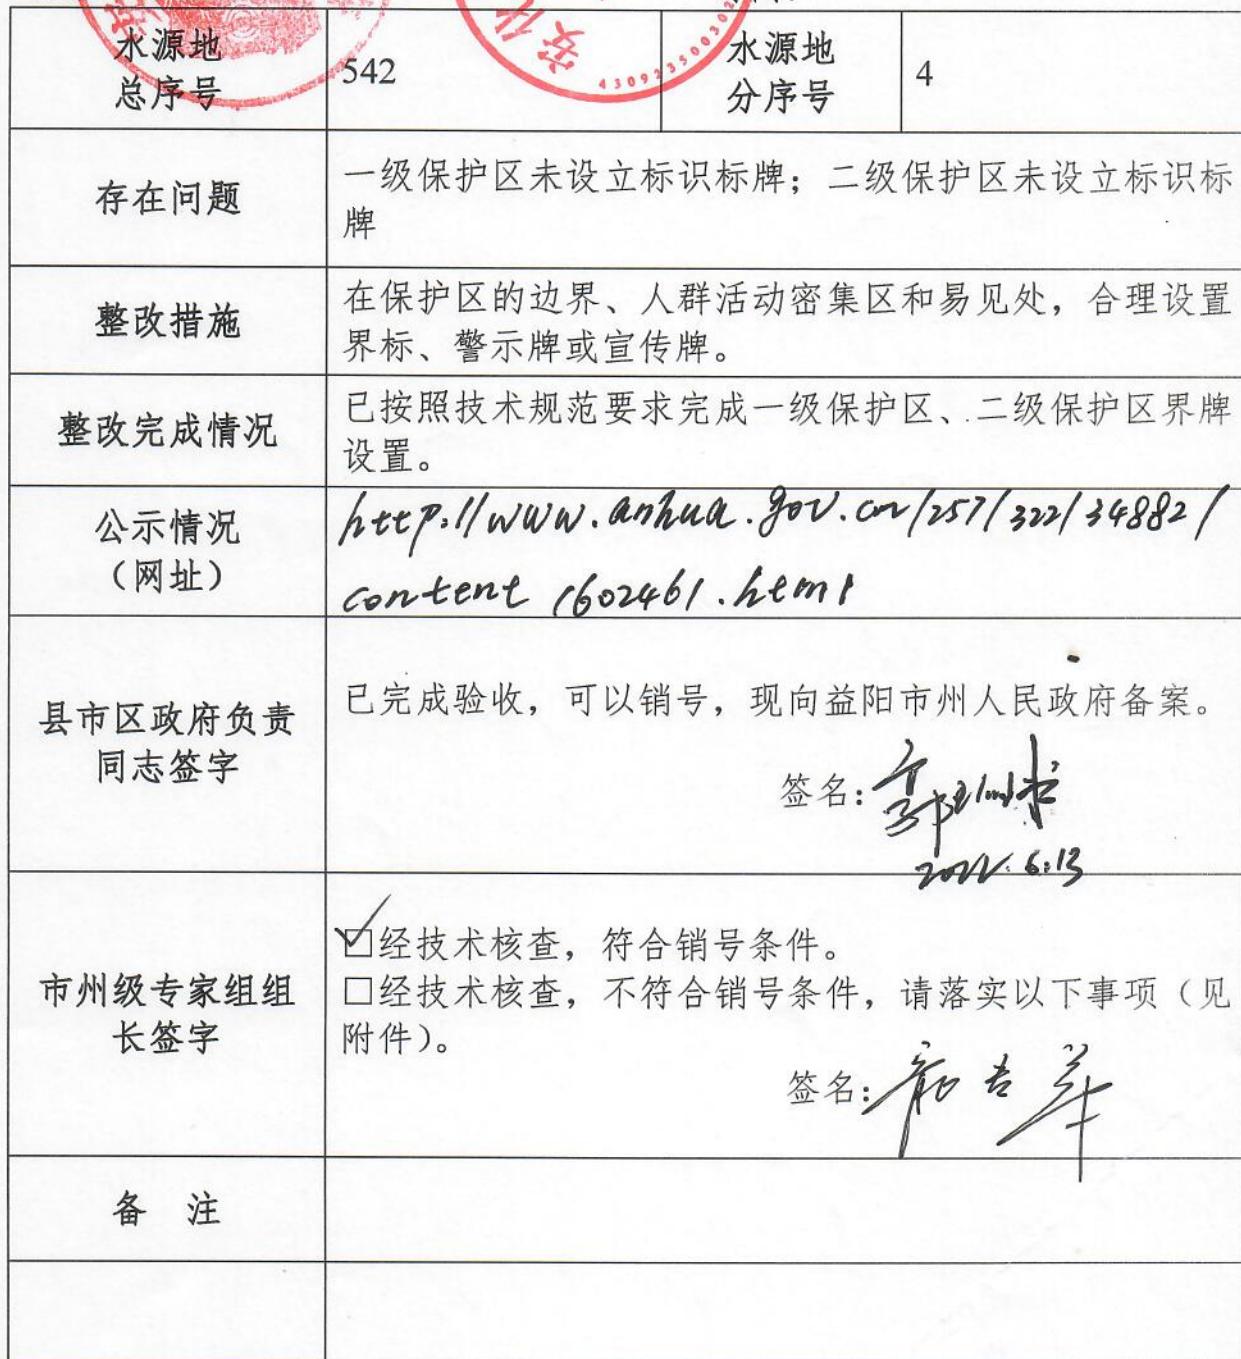 水源地
总序号
542
水源地
分序号
4
存在问题
一级保护区未设立标识标牌；二级保护区未设立标识标
牌
整改措施
在保护区的边界、人群活动密集区和易见处，合理设置
界标、警示牌或宣传牌。
整改完成情况
已按照技术规范要求完成一级保护区、二级保护区界牌
设置。
公示情况
（网址）
http://www.anhua.gov.cn/257/322/34882/
content_1602461.html
县市区政府负责
同志签字
已完成验收，可以销号，现向益阳市州人民政府备案。
签名：
2022.6.13
市州级专家组组
长签字
☑经技术核查，符合销号条件。
□经技术核查，不符合销号条件，请落实以下事项（见
附件）。
签名：
备 注